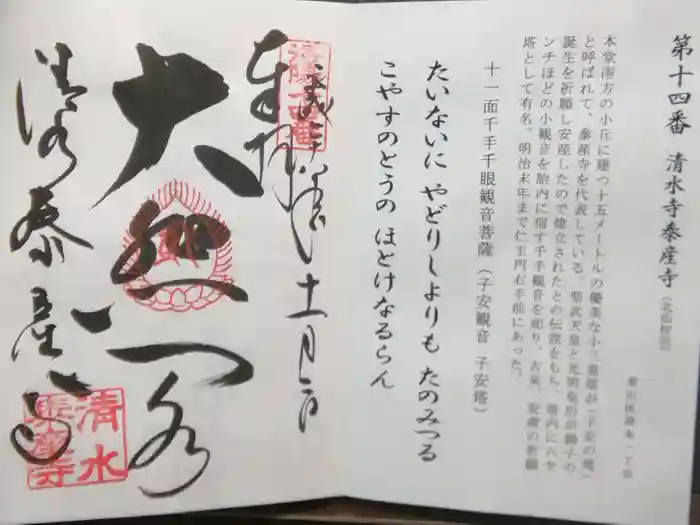 第十四番 清水寺泰産寺
本堂南方の小丘に建つ十五メートルの優美な小三重塔が「子安の塔」
と呼ばれて、泰産寺を代表している。聖武天皇と光明皇后が御子の
誕生を祈願し安産したので建立されたとの伝説をもち、塔内に六セ
ンチほどの小観音を胎内に宿す千手観音を祀り、古来、安産の祈願
塔として有名。明治末年まで仁王門右手前にあった。
十一面千手千眼観音菩薩(子安観音 子安塔)
たいないに やどりしよりも たのみつる
こやすのとうの ほとけなるらん
奉拝
十一月
大悲
清水泰産寺
清水
泰産寺